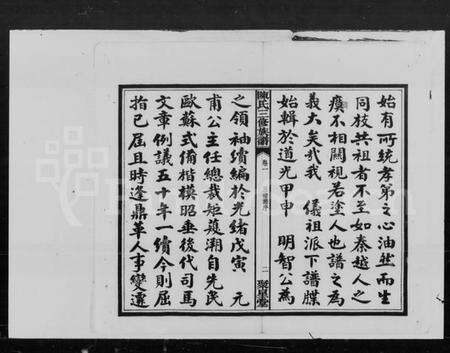 始有所統孝弟之心油然而生
同枝共祖者不至如秦越人之
瘼不相關視若塗人也譜之為
義大矣哉我 儀祖派下譜牒
始輯於道光甲申 明智公為
陳氏三修族譜
卷一
二
聚星堂
之領袖續編於光緒戊寅 元
甫公主任總裁矩蒦溯自先民
歐蘇式備楷模昭垂後代司馬
文章例議五十年一續今則屆
指已屆且時逢鼎革人事變遷